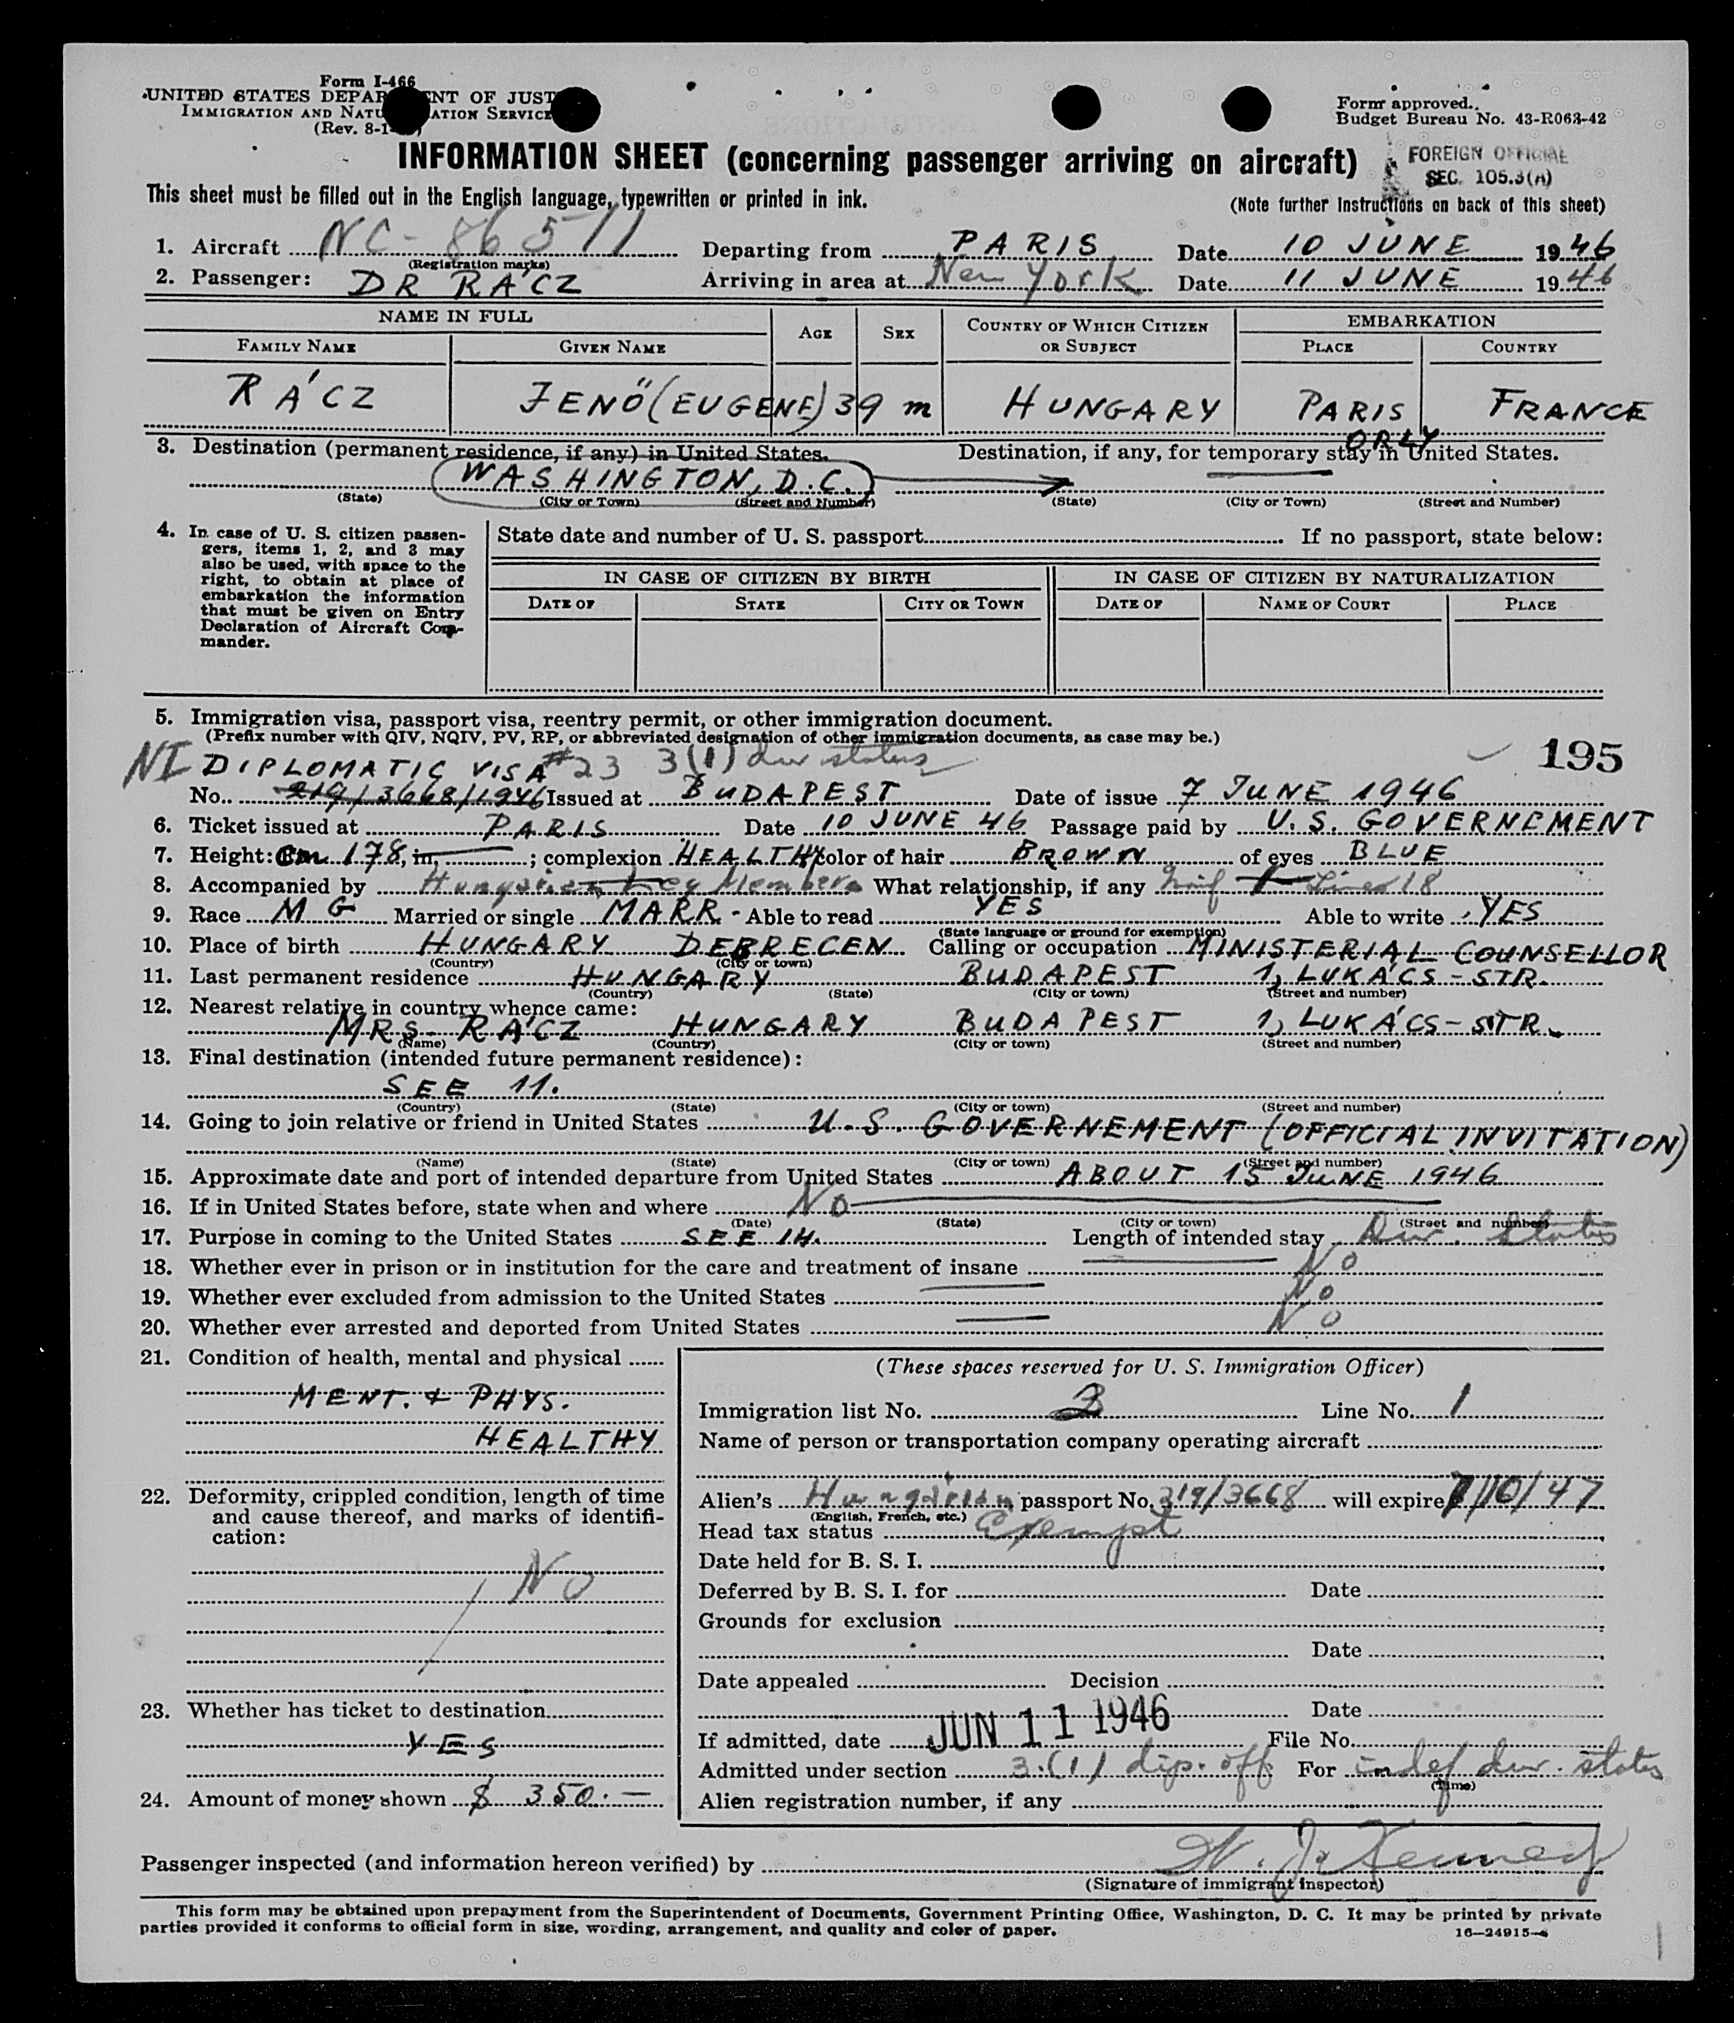 Form I-466
UNITED STATES DEPARTMENT OF JUSTICE
IMMIGRATION AND NATURALIZATION SERVICE
(Rev. 8-1-)
Form approved.
Budget Bureau No. 43-R063-42
INFORMATION SHEET (concerning passenger arriving on aircraft)
FOREIGN OFFICIAL
SEC. 105.3(A)
This sheet must be filled out in the English language, typewritten or printed in ink.
(Note further Instructions on back of this sheet)
1. Aircraft NC-86511 Departing from PARIS Date 10 JUNE 1946
(Registration marks)
2. Passenger: DR RÁCZ Arriving in area at New York Date 11 JUNE 1946
NAME IN FULL AGE SEX COUNTRY OF WHICH CITIZEN OR SUBJECT EMBARKATION
FAMILY NAME GIVEN NAME PLACE COUNTRY
RÁCZ JENŐ (EUGENE) 39 m HUNGARY PARIS FRANCE
ORLY
3. Destination (permanent residence, if any) in United States. Destination, if any, for temporary stay in United States.
WASHINGTON, D.C.
(State) (City or Town) (Street and Number) (State) (City or Town) (Street and Number)
4. In case of U. S. citizen passengers, items 1, 2, and 3 may also be used, with space to the right, to obtain at place of embarkation the information that must be given on Entry Declaration of Aircraft Commander.
State date and number of U. S. passport If no passport, state below:
IN CASE OF CITIZEN BY BIRTH IN CASE OF CITIZEN BY NATURALIZATION
DATE OF STATE CITY OR TOWN DATE OF NAME OF COURT PLACE
5. Immigration visa, passport visa, reentry permit, or other immigration document.
(Prefix number with QIV, NQIV, PV, RP, or abbreviated designation of other immigration documents, as case may be.)
NI DIPLOMATIC VISA #23 3(1) dur status 195
No. 319/3668/1946 Issued at BUDAPEST Date of issue 7 JUNE 1946
6. Ticket issued at PARIS Date 10 JUNE 46 Passage paid by U.S. GOVERNEMENT
7. Height: cm 178, in, ; complexion HEALTHY color of hair BROWN of eyes BLUE
8. Accompanied by Hungarian Leg Members What relationship, if any Lines 18
9. Race MG Married or single MARR. Able to read YES Able to write YES
(State language or ground for exemption)
10. Place of birth HUNGARY DEBRECEN Calling or occupation MINISTERIAL COUNSELLOR
(Country) (City or town)
11. Last permanent residence HUNGARY BUDAPEST 1, LUKÁCS-STR.
(Country) (State) (City or town) (Street and number)
12. Nearest relative in country whence came:
MRS. RÁCZ HUNGARY BUDAPEST 1, LUKÁCS-STR.
(Name) (Country) (City or town) (Street and number)
13. Final destination (intended future permanent residence):
SEE 11.
(Country) (State) (City or town) (Street and number)
14. Going to join relative or friend in United States U.S. GOVERNEMENT (OFFICIAL INVITATION)
(Name) (State) (City or town) (Street and number)
15. Approximate date and port of intended departure from United States ABOUT 15 JUNE 1946
16. If in United States before, state when and where NO
(Date) (State) (City or town) (Street and number)
17. Purpose in coming to the United States SEE 14. Length of intended stay Dur. Status
18. Whether ever in prison or in institution for the care and treatment of insane No
19. Whether ever excluded from admission to the United States No
20. Whether ever arrested and deported from United States No
21. Condition of health, mental and physical
MENT. & PHYS.
HEALTHY
22. Deformity, crippled condition, length of time and cause thereof, and marks of identification:
No
23. Whether has ticket to destination
YES
24. Amount of money shown $ 350.—
(These spaces reserved for U. S. Immigration Officer)
Immigration list No. 3 Line No. 1
Name of person or transportation company operating aircraft
Alien's Hungarian passport No. 319/3668 will expire 7/10/47
(English, French, etc.)
Head tax status Exempt
Date held for B. S. I.
Deferred by B. S. I. for Date
Grounds for exclusion
Date
Date appealed Decision
Date
If admitted, date JUN 11 1946 File No.
Admitted under section 3.(1) dip. off For indef dur. status
(Time)
Alien registration number, if any
Passenger inspected (and information hereon verified) by W. J. Kennedy
(Signature of immigrant inspector)
This form may be obtained upon prepayment from the Superintendent of Documents, Government Printing Office, Washington, D. C. It may be printed by private
parties provided it conforms to official form in size, wording, arrangement, and quality and color of paper.
16—24915-4